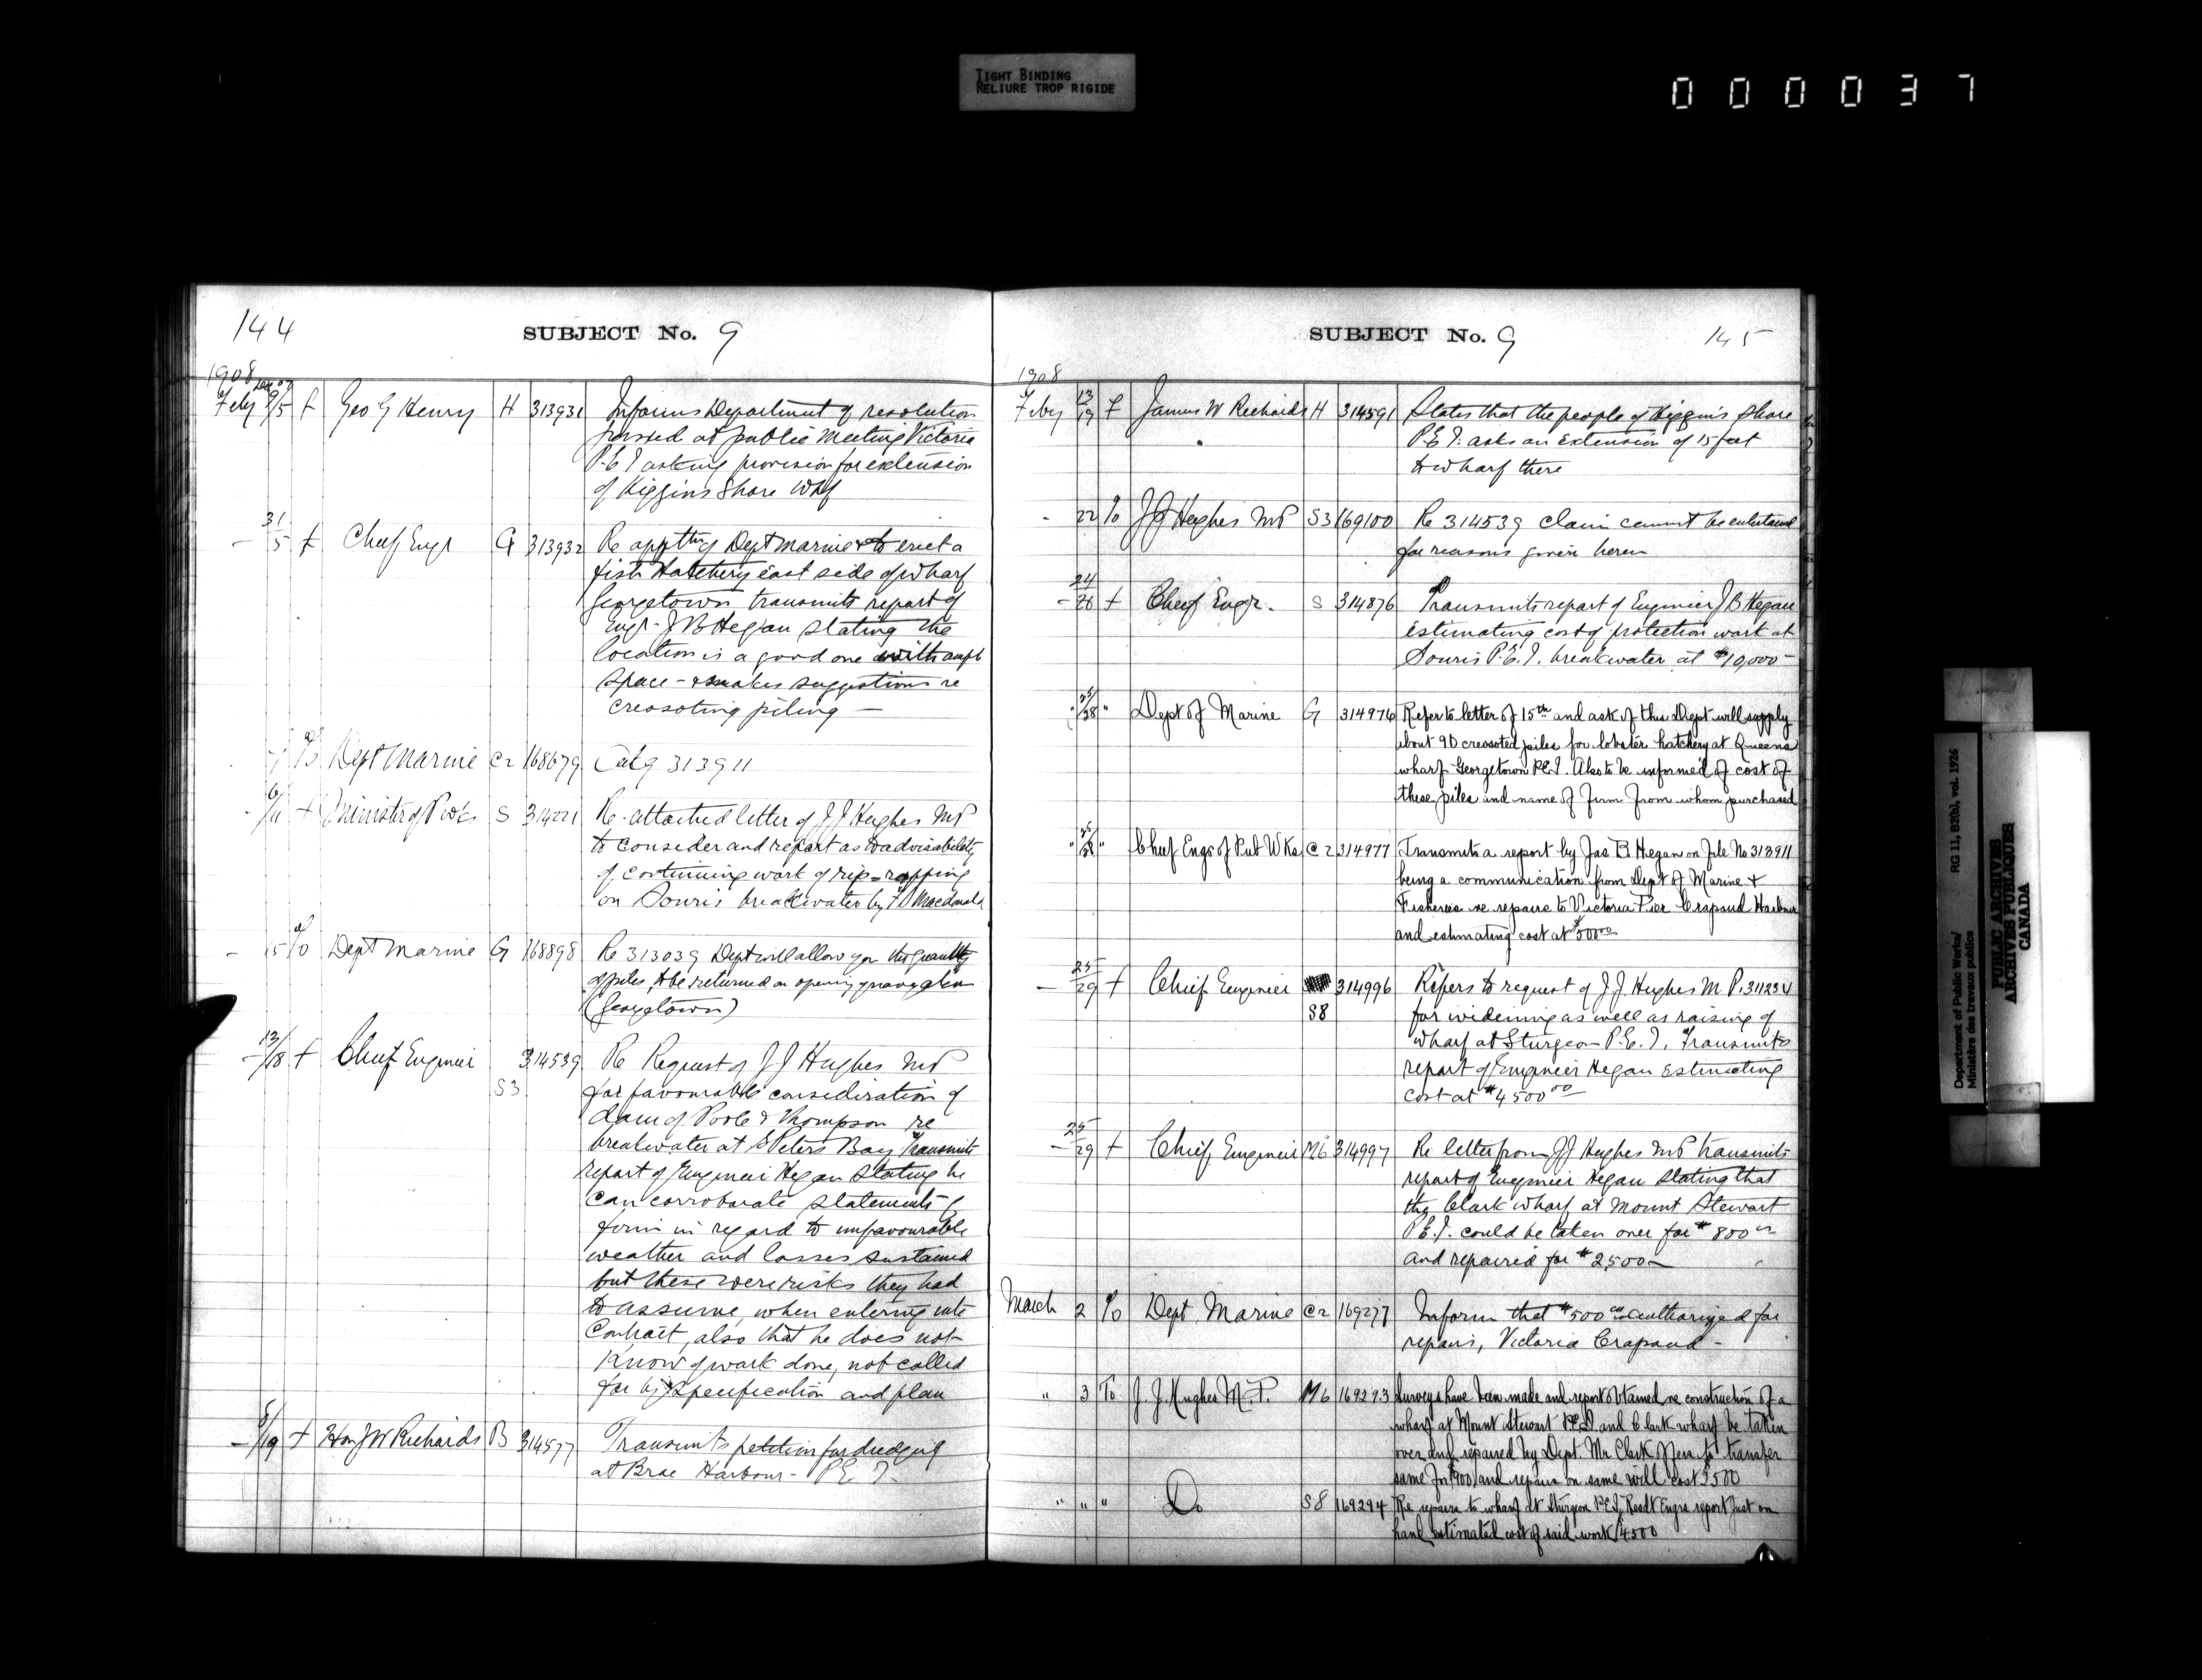 TIGHT BINDING
RELIURE TROP RIGIDE
000037
144
SUBJECT No. 9
1908
Feby 5 f Geo G Henry H 313931 Informs Department of resolution
passed at public meeting Victoria
P.E.I asking provision for extension
of Higgins Shore Whf
31/5 f Chief Engr G 313932 Re appltn Dept Marine to erect a
fish Hatchery east side of wharf
Georgetown, transmits report of
Engr. J B Hegan stating the
location is a good one with ample
space - & makes suggestions re
creosoting piling -
Dept Marine C2 168679 313911
6/11 f Minister of P Wks S 314221 Re attached letter of J J Hughes MP
to consider and report as to advisability
of continuing work of rip-rapping
on Souris breakwater by Macdonald
15 To Dept Marine G 168898 Re 313039 Dept will allow you this quantity
of piles, to be returned on opening navigation
(Georgetown)
13/18 f Chief Engineer S3 314539 Re Request of J J Hughes MP
for favourable consideration of
claim of Poole & Thompson re
breakwater at St Peters Bay Transmits
report of Engineer Hegan stating he
can corroborate statements of
firm in regard to unfavourable
weather and losses sustained
but these were risks they had
to assume, when entering into
Contract, also that he does not
know of work done, not called
for by specification and plan
8/19 f Hon J W Richards B 314577 Transmits petition for dredging
at Brae Harbour - P.E.I.
SUBJECT No. 9
145
1908
Feby 13/19 f James W Richards H 314591 States that the people of Higgins Shore
P.E.I. asks an extension of 15 feet
to wharf there
- 22 To J J Hughes MP S3 169100 Re 314539 claim cannot be entertained
for reasons given herein
- 24/28 f Chief Engr. S 314876 Transmits report of Engineer J B Hegan
estimating cost of protection work at
Souris P.E.I. breakwater at $10,000 -
" 25/28 " Dept of Marine G 314976 Refer to letter of 15th and ask if this Dept will supply
about 90 creosoted piles for lobster hatchery at Queens
wharf Georgetown P.E.I. Also to be informed of cost of
these piles and name of firm from whom purchased
" 25/28 " Chief Engr of Pub Wks C2 314977 Transmits a report by Jas B Hegan on file No 313911
being a communication from Dept of Marine &
Fisheries re repairs to Victoria Pier Crapaud Harbour
and estimating cost at $500.00
- 25/29 f Chief Engineer S8 314996 Refers to request of J J Hughes M P. 311234
for widening as well as raising of
wharf at Sturgeon P.E.I. Transmits
report of Engineer Hegan Estimating
cost at $4500 00
- 25/29 f Chief Engineer M6 314997 Re letter from J J Hughes MP transmits
report of Engineer Hegan stating that
the Clark wharf at Mount Stewart
P.E.I. could be taken over for $800
and repaired for $2500 -
March 2 To Dept Marine C2 169277 Inform that $500 authorized for
repairs, Victoria Crapaud -
" 3 To J. J. Hughes M.P. M6 169293 Surveys have been made and report obtained re construction of a
wharf at Mount Stewart P.E.I and Clark wharf be taken
over and repaired by Dept. Mr Clark offers to transfer
same for and repairs on same will cost
" " " Do S8 169294 Re repairs to wharf at Sturgeon P.E.I. Resdt Engrs report just on
hand estimated cost of said work $4500
Department of Public Works/
Ministère des travaux publics
RG 11, B2(b), vol. 1926
PUBLIC ARCHIVES
ARCHIVES PUBLIQUES
CANADA